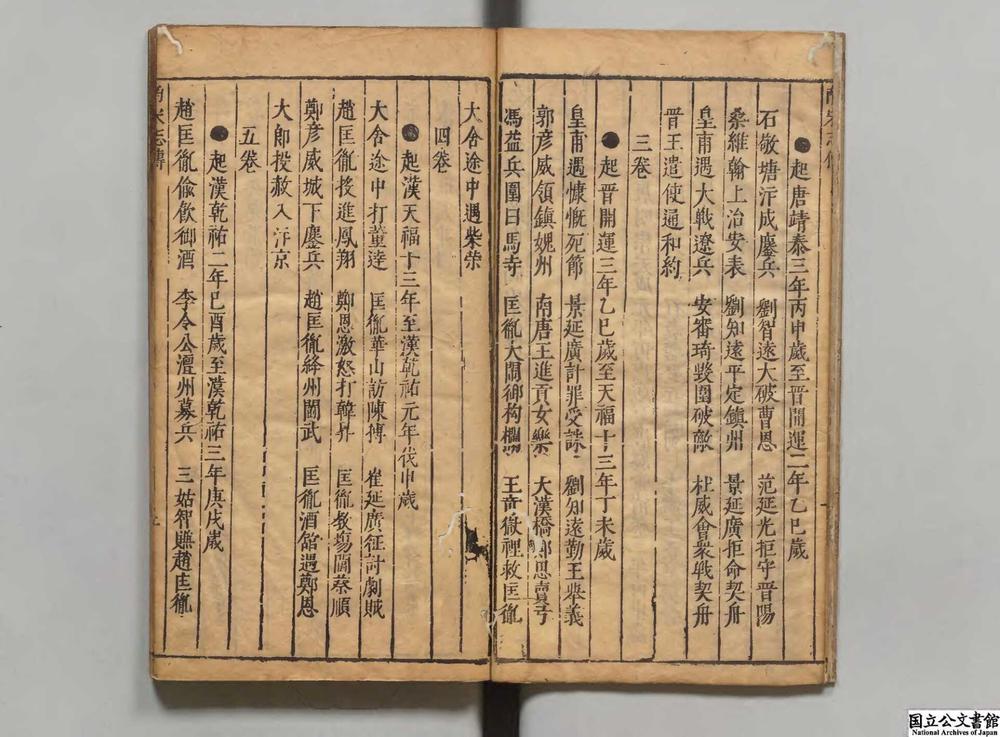 ●起唐靖泰三年丙申歲至晉開運二年乙巳歲
石敬塘汴成鏖兵 劉智遠大破曹恩 范延光拒守晉陽
桑維翰上治安表 劉知遠平定鎮州 景延廣拒命契丹
皇甫遇大戰遼兵 安審琦發圍破敵 杜威會衆戰契丹
晉王遣使通和約
三卷
●起晉開運三年乙巳歲至天福十三年丁未歲
皇甫遇慷慨死節 景延廣計罪受誅 劉知遠勤王舉義
郭彥威領鎮魏州 南唐王進貢女樂 大漢橋鄭恩賣弓
馮益兵圍白馬寺 匡胤大鬧御构欄 王彥獄裡救匡胤
大舍途中遇柴荣
四卷
●起漢天福十三年至漢乾祐元年戊申歲
大舍途中打董逵 匡胤華山訪陳摶 崔延廣征討劇賊
趙匡胤投進鳳翔 鄭恩激怒打韓昇 匡胤教塲鬭蔡順
鄭彥威城下鏖兵 趙匡胤絳州鬭武 匡胤酒館遇鄭恩
大郎投赦入汴京
五卷
●起漢乾祐二年己酉歲至漢乾祐三年庚戌歲
趙匡胤偷飲御酒 李令公澶州募兵 三姑智賺趙匡胤
南宋志傳
国立公文書館
National Archives of Japan